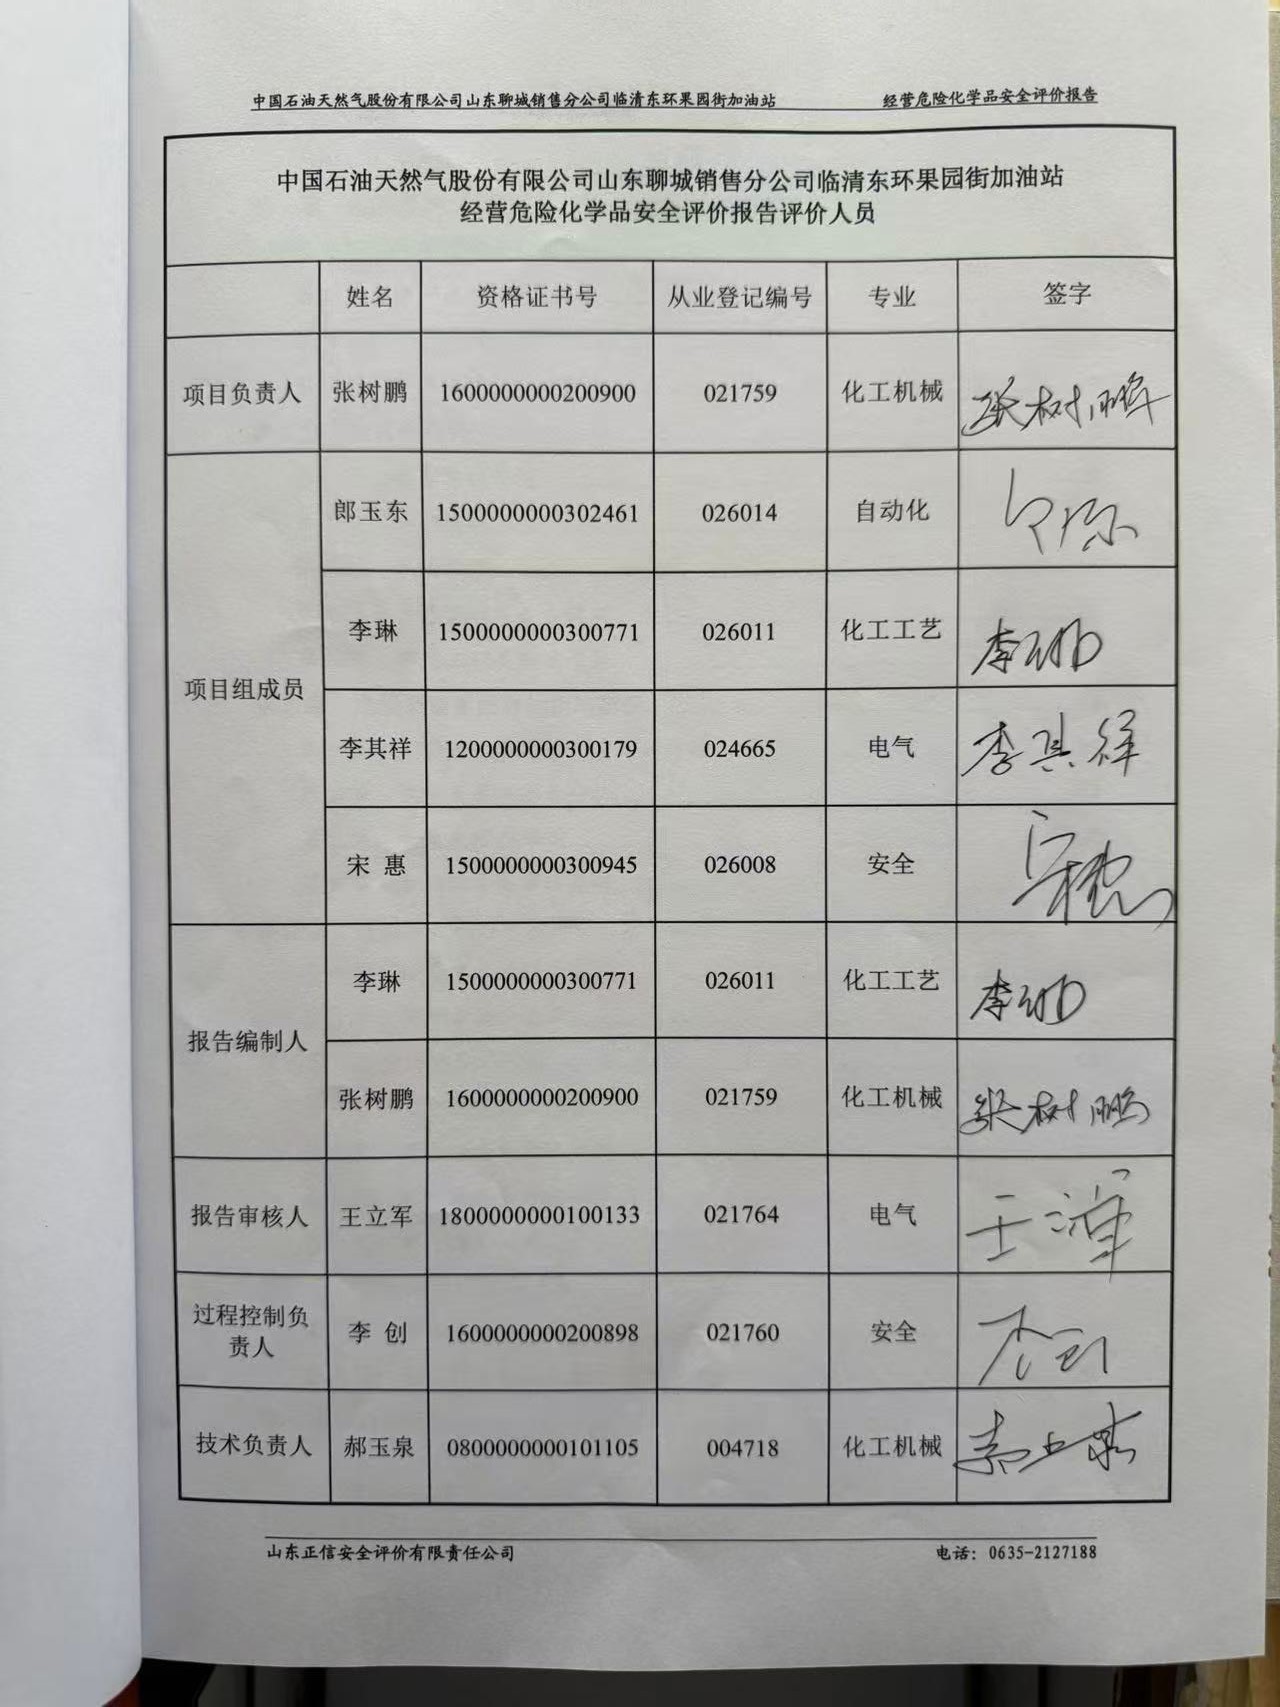 中国石油天然气股份有限公司山东聊城销售分公司临清东环果园街加油站 经营危险化学品安全评价报告
中国石油天然气股份有限公司山东聊城销售分公司临清东环果园街加油站
经营危险化学品安全评价报告评价人员
姓名 资格证书号 从业登记编号 专业 签字
项目负责人 张树鹏 1600000000200900 021759 化工机械 张树鹏
项目组成员
郎玉东 1500000000302461 026014 自动化
李琳 1500000000300771 026011 化工工艺 李琳
李其祥 1200000000300179 024665 电气 李其祥
宋 惠 1500000000300945 026008 安全
报告编制人
李琳 1500000000300771 026011 化工工艺 李琳
张树鹏 1600000000200900 021759 化工机械 张树鹏
报告审核人 王立军 1800000000100133 021764 电气 王立军
过程控制负
责人
李 创 1600000000200898 021760 安全 李创
技术负责人 郝玉泉 0800000000101105 004718 化工机械 郝玉泉
山东正信安全评价有限责任公司 电话：0635-2127188